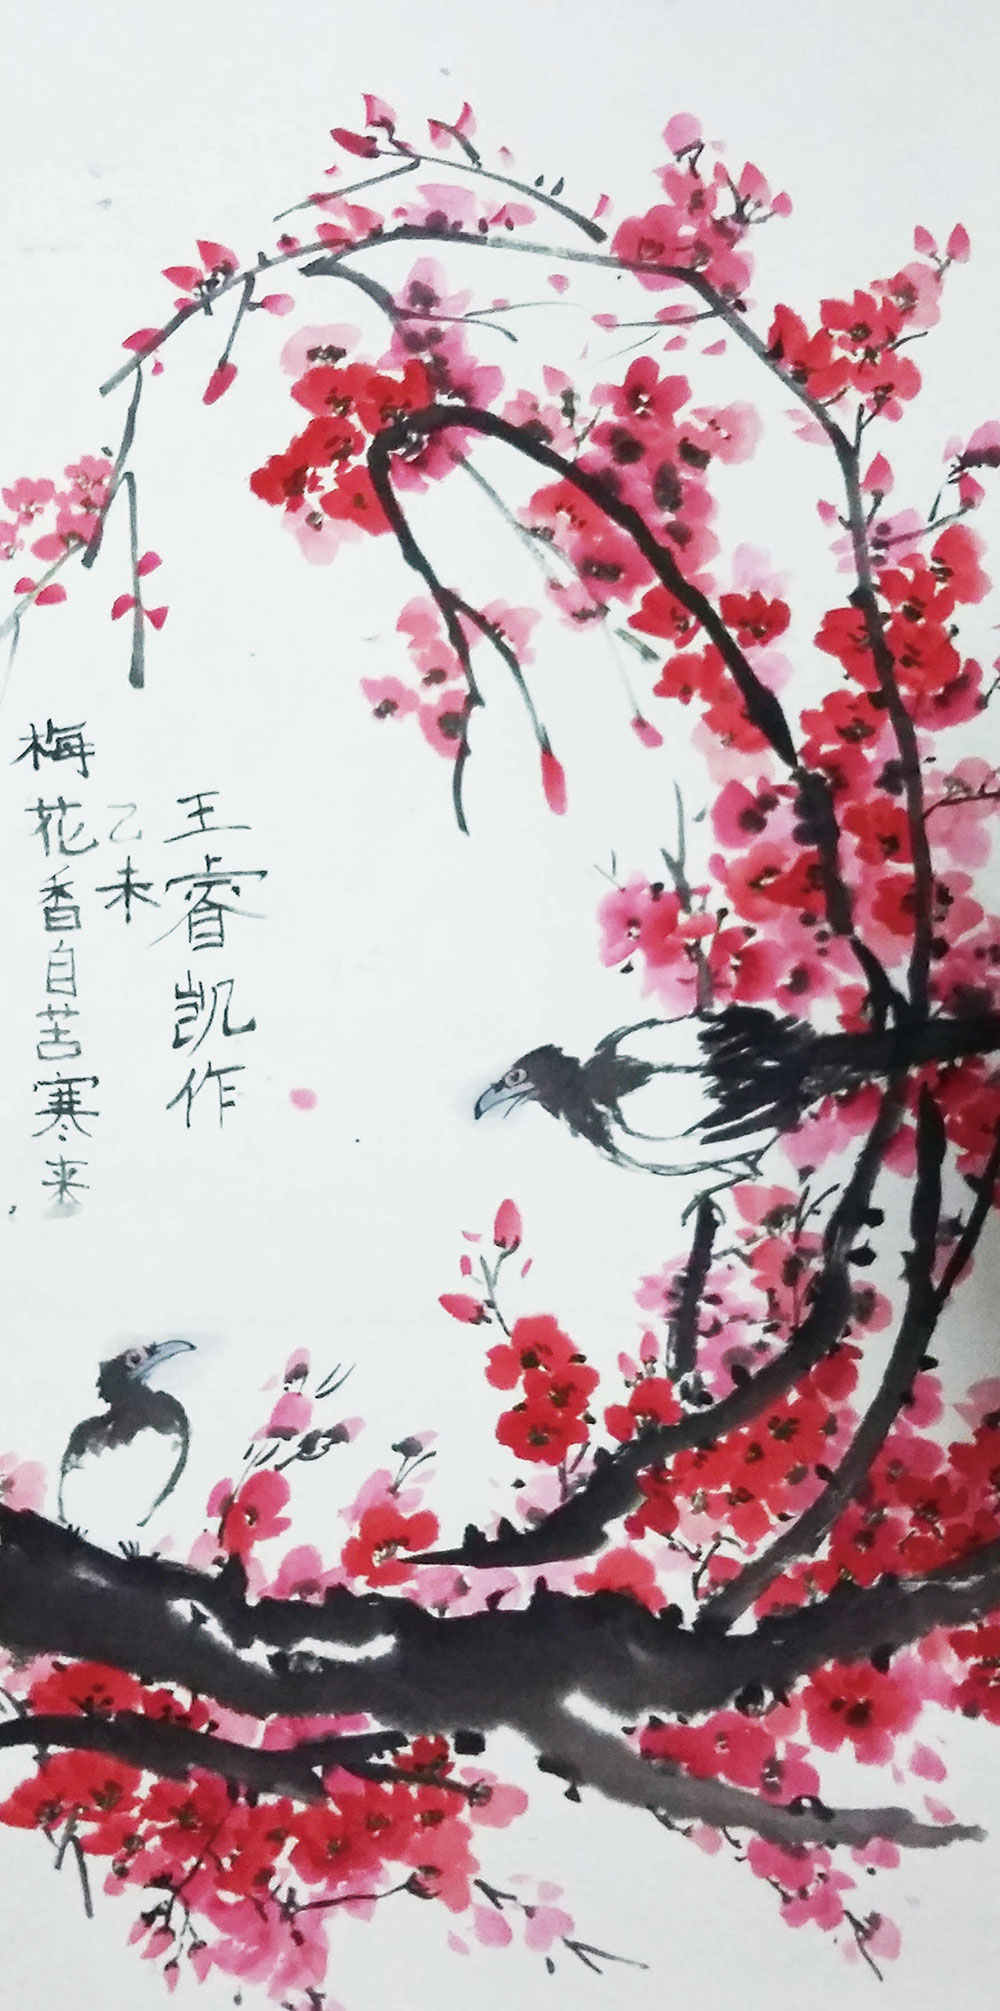 梅花香自苦寒来
乙未
王睿凯作